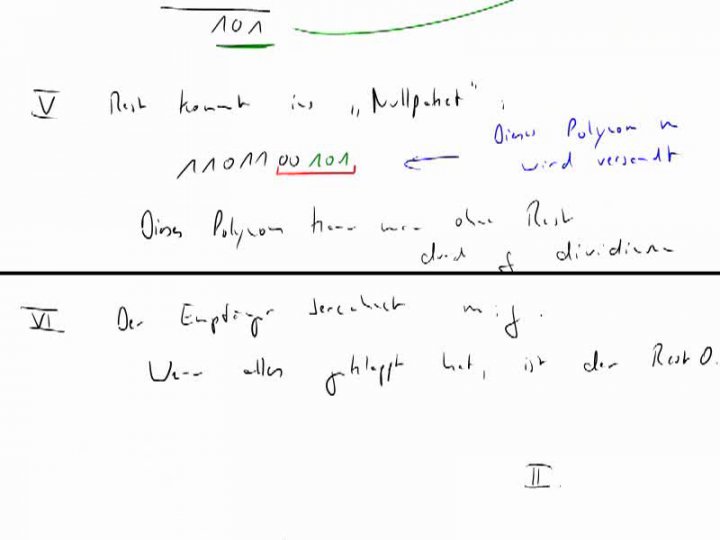 101
V Rest kommt ins „Nullpaket“:
11011 00 101 ← Dieses Polynom m wird versendt
Dieses Polynom kann man ohne Rest
durch f dividieren
VI Der Empfänger berechnet m : f.
Wenn alles geklappt hat, ist der Rest 0.
II.